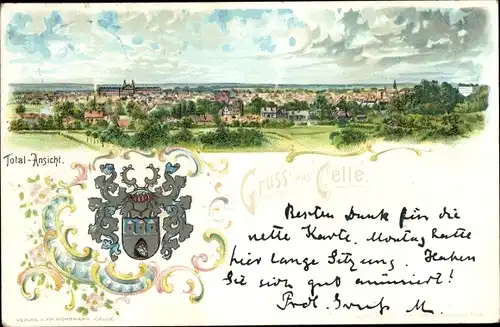 Total-Ansicht.
Gruss aus Celle.
Besten Dank für die
nette Karte. Montag hatte
hier lange Sitzung. Haben
Sie sich gut amüsiert!
Gruß M.
VERLAG V. FR. NORDMANN CELLE